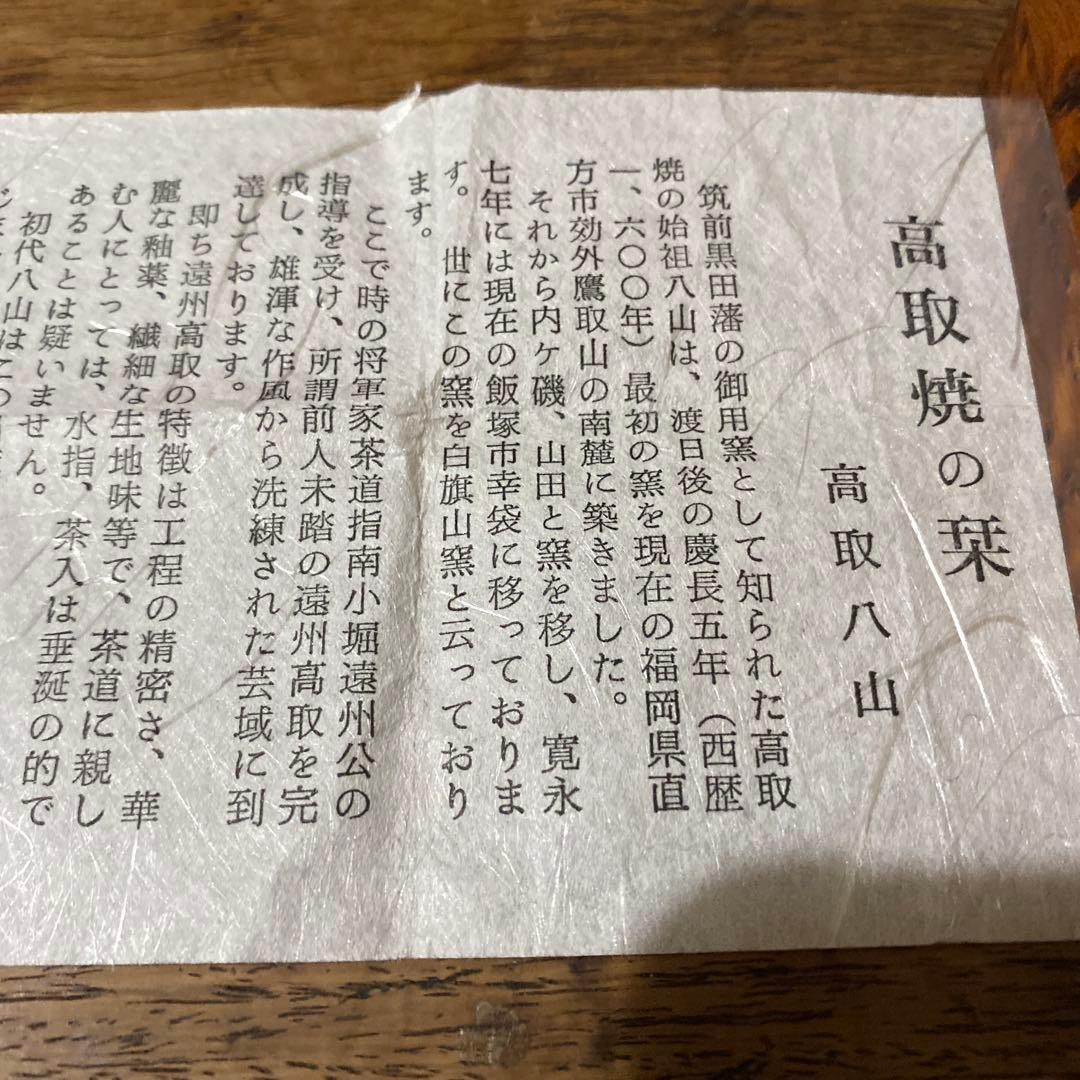 高取焼の栞
高取八山
筑前黒田藩の御用窯として知られた高取
焼の始祖八山は、渡日後の慶長五年（西歴
一、六〇〇年）最初の窯を現在の福岡県直
方市効外鷹取山の南麓に築きました。
それから内ケ磯、山田と窯を移し、寛永
七年には現在の飯塚市幸袋に移っておりま
す。　世にこの窯を白旗山窯と云っており
ます。
ここで時の将軍家茶道指南小堀遠州公の
指導を受け、所謂前人未踏の遠州高取を完
成し、雄渾な作風から洗練された芸域に到
達しております。
即ち遠州高取の特徴は工程の精密さ、華
麗な釉薬、繊細な生地味等で、茶道に親し
む人にとっては、水指、茶入は垂涎の的で
あることは疑いません。
初代八山はこの